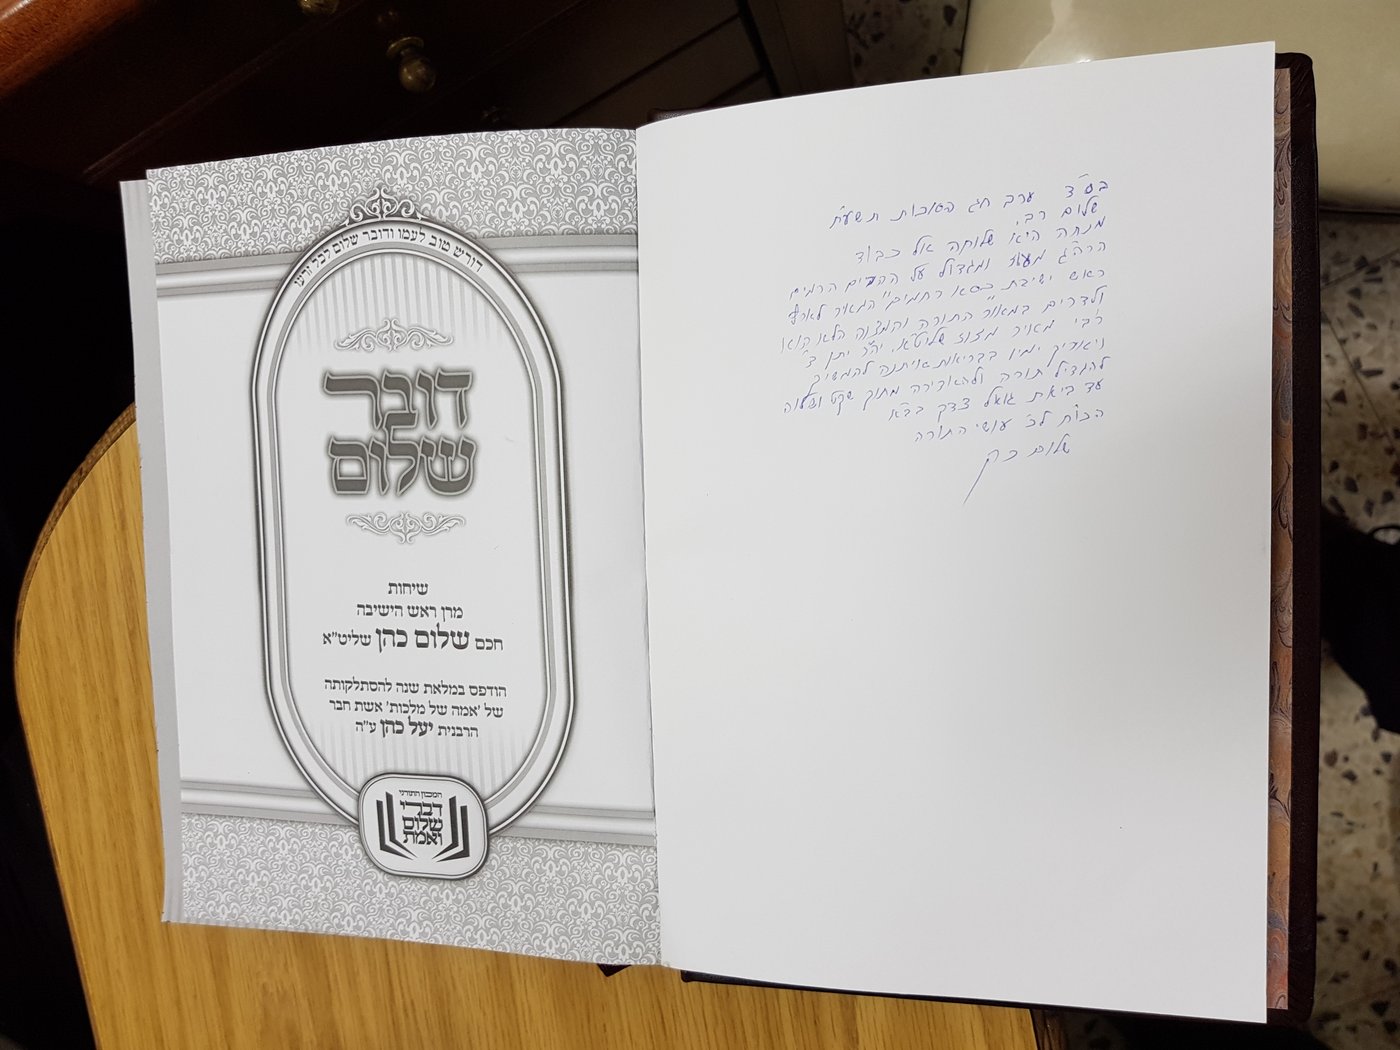 בס״ד ערב חג הסוכות תשע״ח
שלום רב,
מנחה היא שלוחה אל כבוד
הרה״ג מעוז ומגדול על ההרים הרמים
ראש ישיבת כסא רחמים" המאיר לארץ
ולדרים במאור התורה והמצוה הלא הוא
רבי מאיר מזוז שליט״א, יה״ר יתן ה׳
ויאריך ימיו בבריאות איתנה להמשיך
להגדיל תורה ולהאדירה מתוך שקט ושלוה
עד ביאת גואל צדק בב״א
הכו״ח לכ׳ עושי התורה
שלום כהן
דורש טוב לעמו ודובר שלום לכל זרעו
דובר
שלום
שיחות
מרן ראש הישיבה
חכם שלום כהן שליט״א
הודפס במלאת שנה להסתלקותה
של 'אמה של מלכות' אשת חבר
הרבנית יעל כהן ע״ה
המכון התורני
דברי
שלום
ואמת